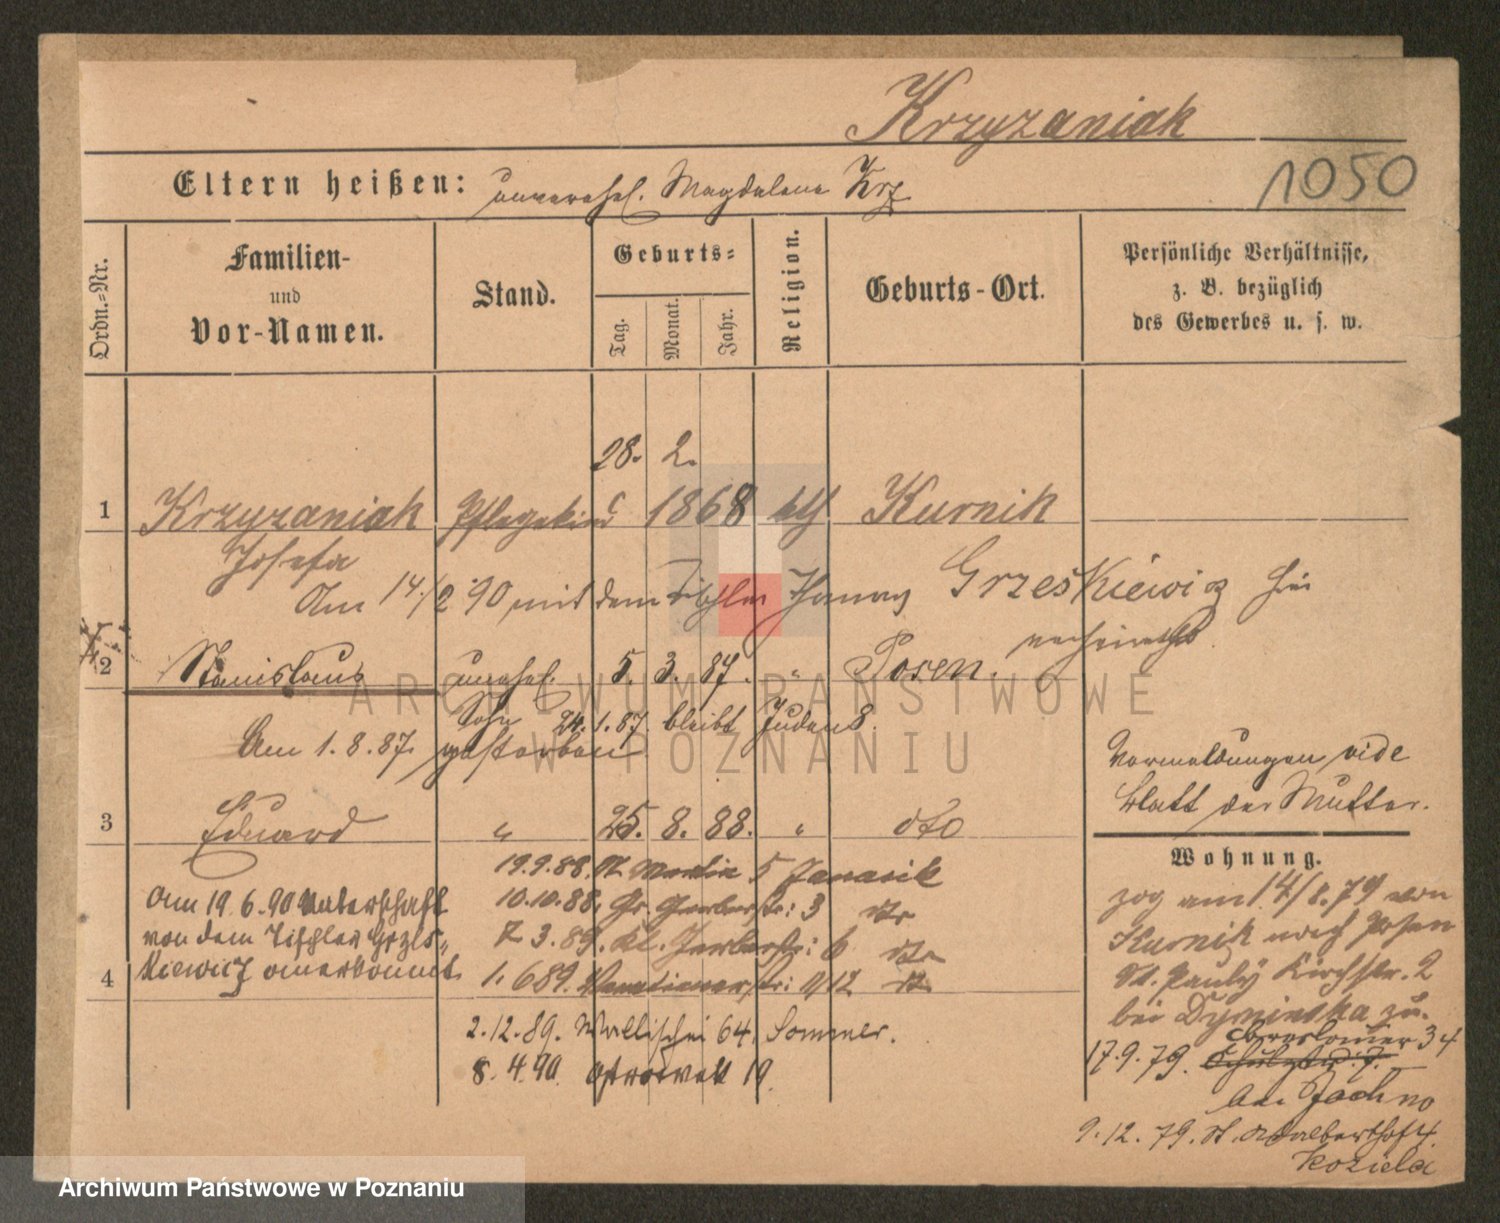 Krzyzaniak
1050
Eltern heißen: unverehel. Magdalena Krz.
Ordn.=Nr.
Familien-
und
Vor-Namen.
Stand.
Geburts=
Tag.
Monat.
Jahr.
Religion.
Geburts-Ort.
Persönliche Verhältnisse,
z. B. bezüglich
des Gewerbes u. s. w.
28. 2.
1 Krzyzaniak Pflegekind 1868 kth Kurnik
Josefa
Am 14./2 90 mit dem Tischler Grzeskiewicz hier
verheirathet
2 Stanislaus unehel. 5. 3. 87. " Posen.
Sohn 24.1.87. bleibt Judenstr. 8.
Am 1.8.87. gestorben
Vormeldungen vide
Blatt der Mutter.
3 Eduard " 25. 8. 88. " dto
Wohnung.
19.9.88. St. Martin 5 Janasik
10.10.88. Gr. Gerberstr: 3 dto
7 3.89. Kl. Gerberstr: 6 dto
1. 6 89. Venetianerstr: 11/12 dto
2.12.89. Wallischei 64, Sommer.
8. 4.90. Ostrowek 19.
Am 19.6.90 Vaterschaft
von dem Tischler Grzes=
kiewicz anerkannt.
4
zog am 14/8.79 von
Kurnik nach Posen
St. Pauly Kirchstr. 2
bei Dyminska zu.
Breslauer 34
17.9.79. Schulstr. 7.
bei Jachno
9.12.79. St. Adalberthof 4.
Koziela
ARCHIWUM PAŃSTWOWE
W POZNANIU
Archiwum Państwowe w Poznaniu